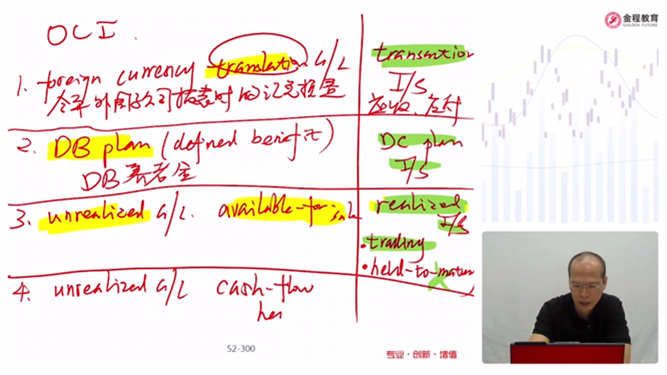 OCI.
金程教育
GOLDEN FUTURE
1. foreign currency translation G/L
transaction
I/S
2. DB plan (defined benefit)
DB养老金
DC plan
I/S
3. unrealized G/L. available-for-sale
realized
I/S
• trading
• held-to-matur
4. unrealized G/L cash-flow
he
52-300
专业·创新·增值